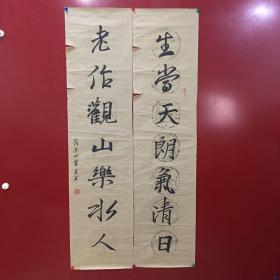 生当天朗氣清日
老作觀山樂水人